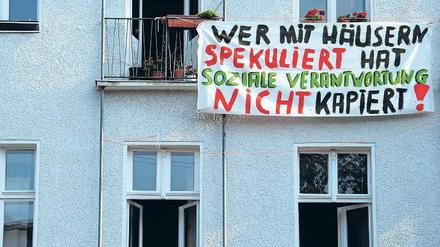 WER MIT HÄUSERN
SPEKULIERT HAT
SOZIALE VERANTWORTUNG
NICHT KAPIERT!